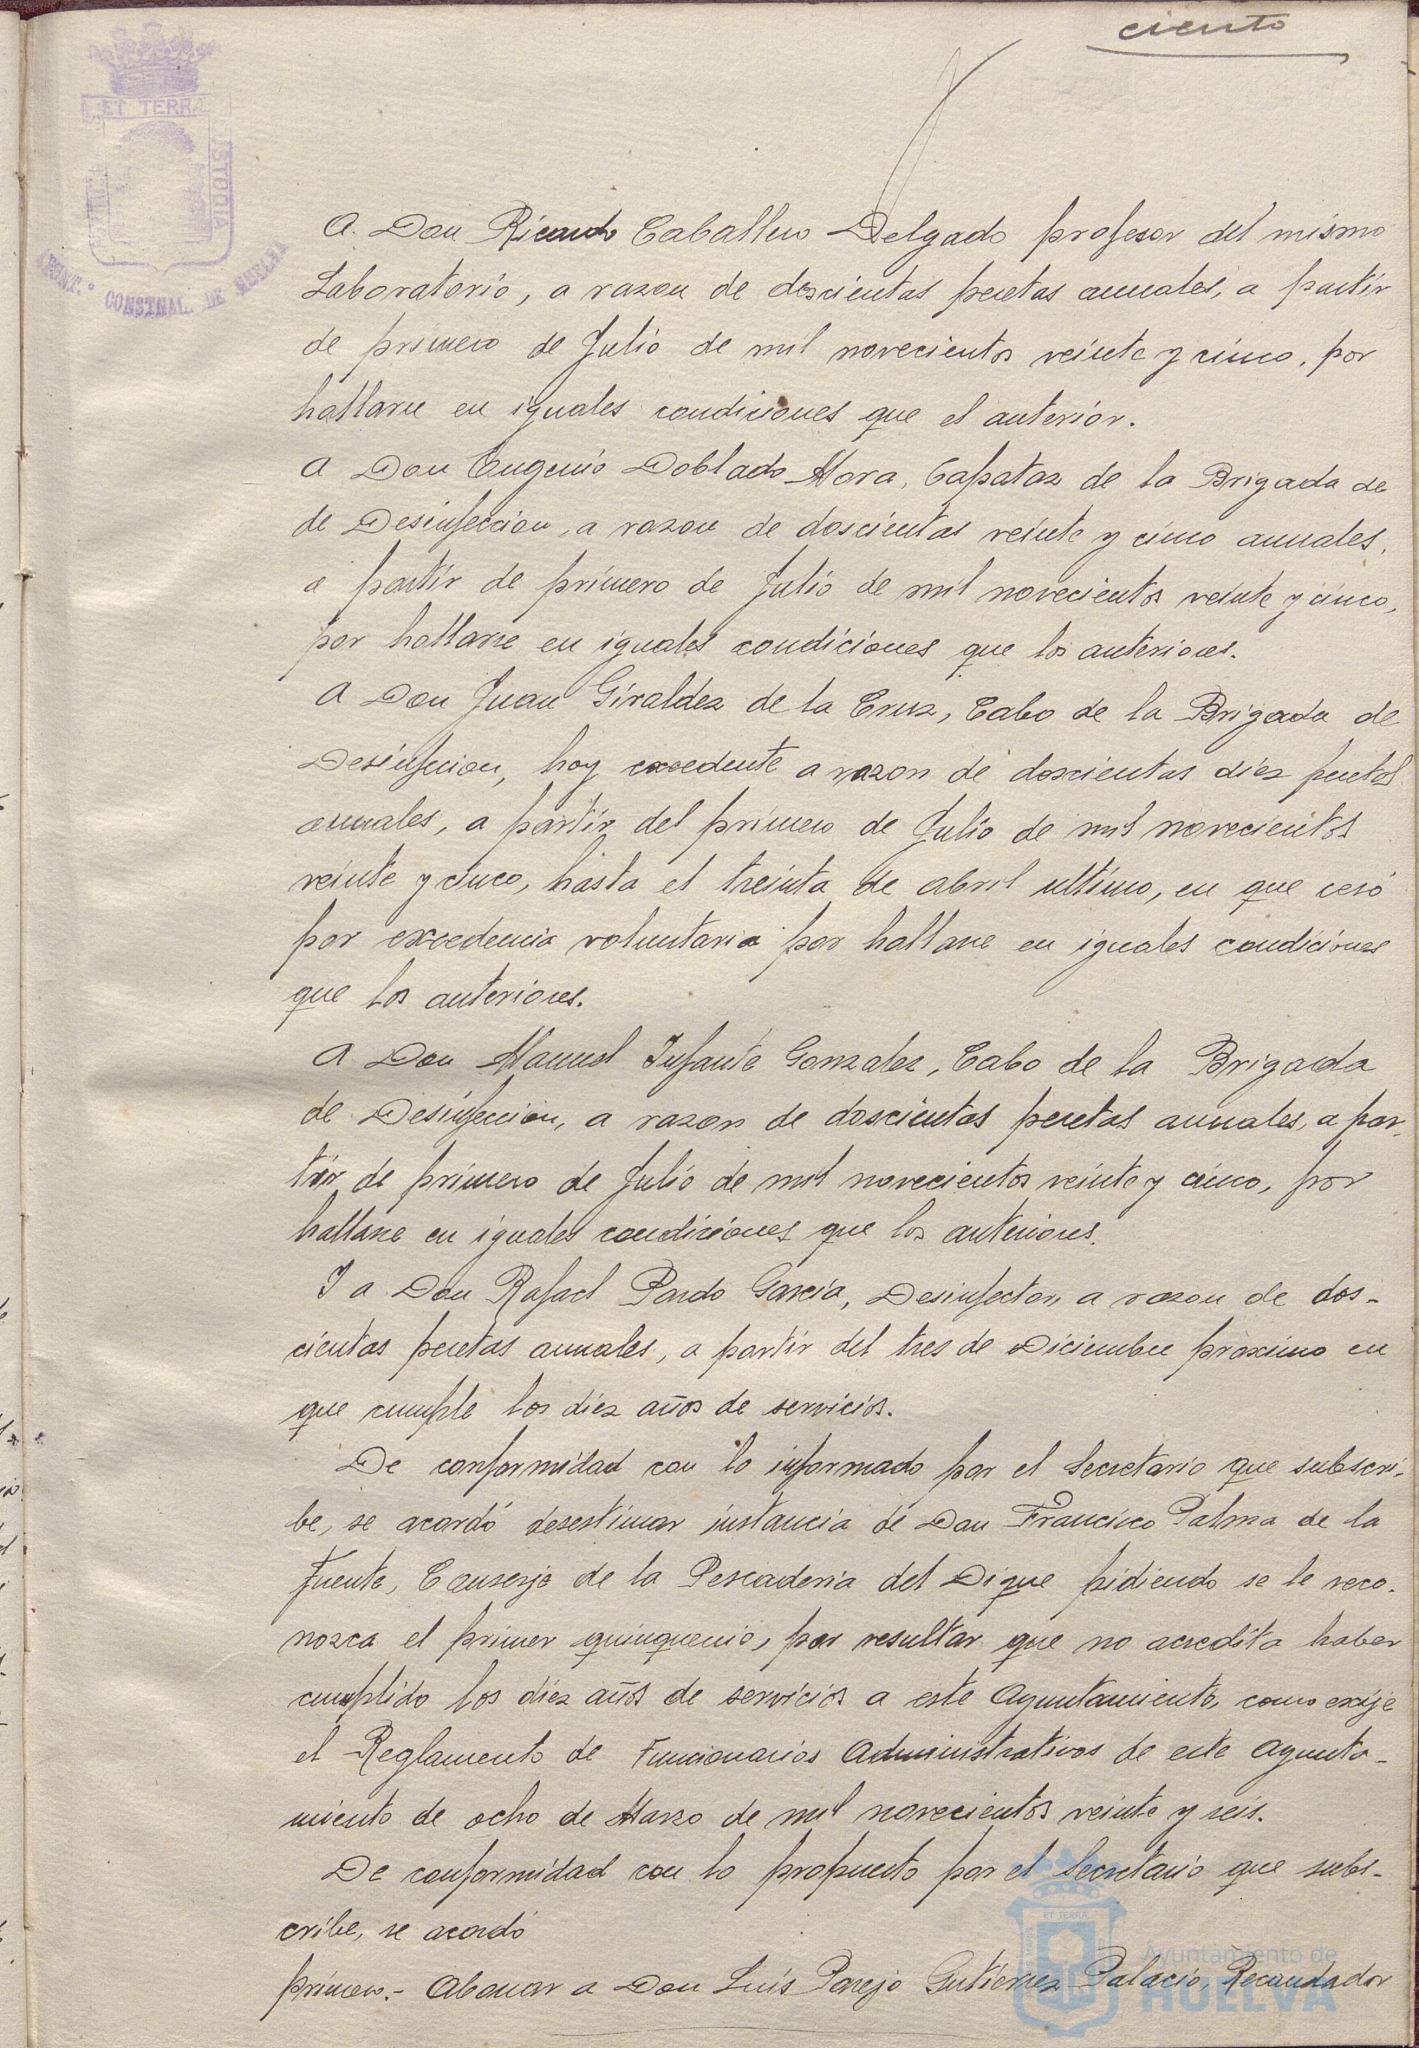 ciento
ET TERRA
STODIA
AYUNT.º CONSTNAL. DE HUELVA
A Don Ricardo Caballero Delgado profesor del mismo
Laboratorio, a razon de doscientas pesetas anuales, a partir
de primero de Julio de mil novecientos veinte y cinco, por
hallarse en iguales condiciones que el anterior.
A Don Eugenio Doblado Mora, Capataz de la Brigada de
de Desinfeccion, a razon de doscientas veinte y cinco anuales,
a partir de primero de Julio de mil novecientos veinte y cinco,
por hallarse en iguales condiciones que los anteriores.
A Don Juan Giraldez de la Cruz, Cabo de la Brigada de
Desinfeccion, hoy excedente a razon de doscientas diez pesetas
anuales, a partir del primero de Julio de mil novecientos
veinte y cinco, hasta el treinta de abril ultimo, en que cesó
por excedencia voluntaria por hallarse en iguales condiciones
que los anteriores.
A Don Manuel Infante Gonzalez, Cabo de la Brigada
de Desinfeccion, a razon de doscientas pesetas anuales, a par-
tir de primero de Julio de mil novecientos veinte y cinco, por
hallarse en iguales condiciones que los anteriores.
Y a Don Rafael Pardo Garcia, Desinfector, a razon de dos-
cientas pesetas anuales, a partir del tres de Diciembre próximo en
que cumple los diez años de servicios.
De conformidad con lo informado por el Secretario que subscri-
be, se acordó desestimar instancia de Don Francisco Palma de la
Fuente, Conserje de la Pescaderia del Dique pidiendo se le reco-
nozca el primer quinquenio, por resultar que no acredita haber
cumplido los diez años de servicios a este Ayuntamiento, como exije
el Reglamento de Funcionarios Administrativos de este Ayunta-
miento de ocho de Marzo de mil novecientos veinte y seis.
De conformidad con lo propuesto por el Secretario que subs-
cribe, se acordó
primero.- Abonar a Don Luis Parejo Gutierrez Palacio, Recaudador
Ayuntamiento de
HUELVA